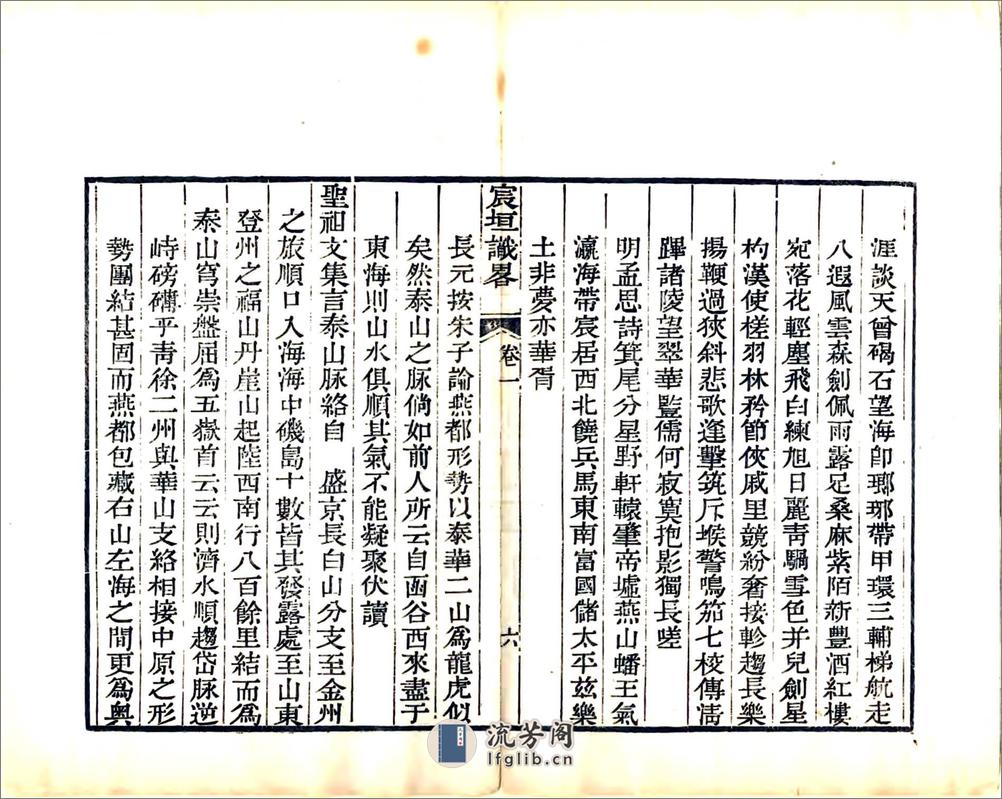 涯談天曾碣石望海卽瑯琊帶甲環三輔梯航走
八遐風雲森劍佩雨露足桑麻紫陌新豐酒紅樓
宛落花輕塵飛白練旭日麗靑騧雪色并兒劍星
杓漢使槎羽林矜節俠戚里競紛奢接軫趨長樂
揚鞭過狹斜悲歌逢擊筑斥堠警鳴笳七校傳淸
蹕諸陵望翠華豎儒何寂寞抱影獨長嗟
明孟思詩箕尾分星野軒轅肇帝墟燕山蟠王氣
瀛海帶宸居西北饒兵馬東南富國儲太平兹樂
土非夢亦華胥
宸垣識畧
卷一
六
長元按朱子論燕都形勢以泰華二山爲龍虎似
矣然泰山之脉倘如前人所云自函谷西來盡于
東海則山水俱順其氣不能凝聚伏讀
聖祖文集言泰山脉絡自 盛京長白山分支至金州
之旅順口入海海中磯島十數皆其發露處至山東
登州之福山丹崖山起陸西南行八百餘里結而爲
泰山穹崇盤屈爲五嶽首云云則濟水順趨岱脉逆
峙磅礴乎靑徐二州與華山支絡相接中原之形
勢團結甚固而燕都包藏右山左海之間更爲奧
流芳阁
lfglib.cn